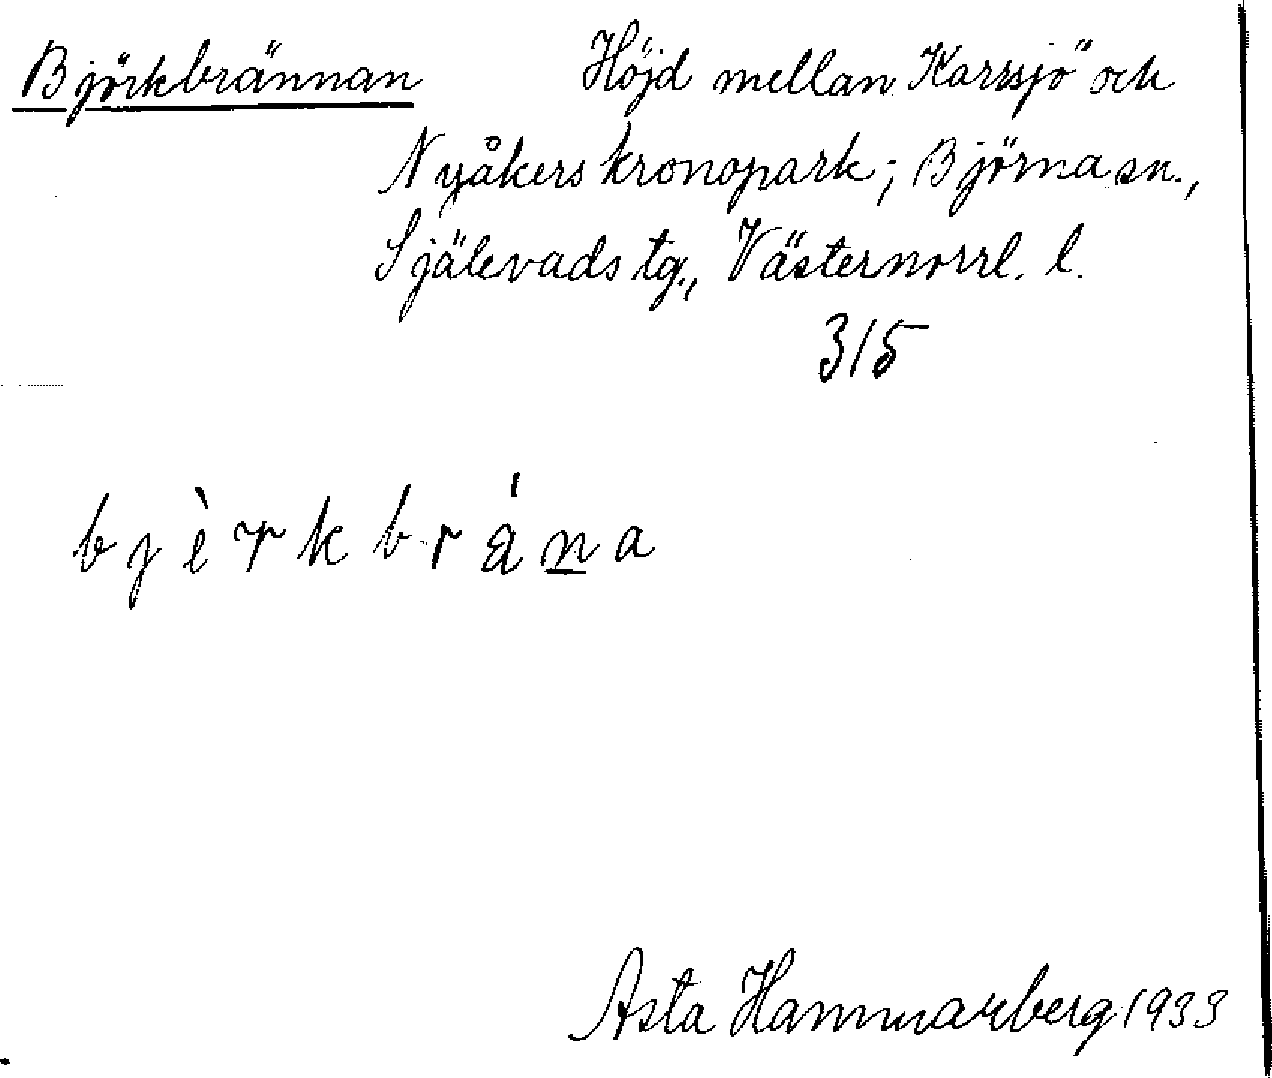 Björkbrännan Höjd mellan Karsjö och
Nyåkers kronopark; Björna sn.,
Själevads tg., Västernorrl. l.
315
bjèrkbrána
Asta Hammarberg 1933